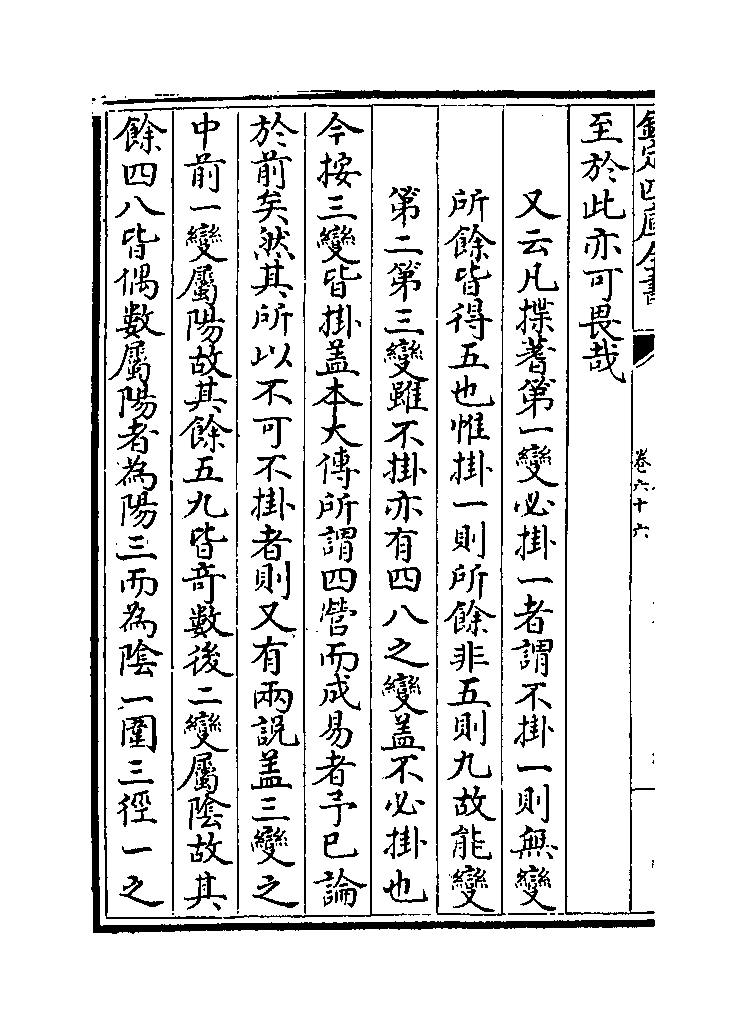 欽定四庫全書
卷六十六
至於此亦可畏哉
又云凡揲蓍第一變必掛一者謂不掛一則無變
所餘皆得五也惟掛一則所餘非五則九故能變
第二第三變雖不掛亦有四八之變盖不必掛也
今按三變皆掛盖本大傳所謂四營而成易者予已論
於前矣然其所以不可不掛者則又有兩説盖三變之
中前一變屬陽故其餘五九皆奇數後二變屬陰故其
餘四八皆偶數屬陽者為陽三而為陰一圍三徑一之